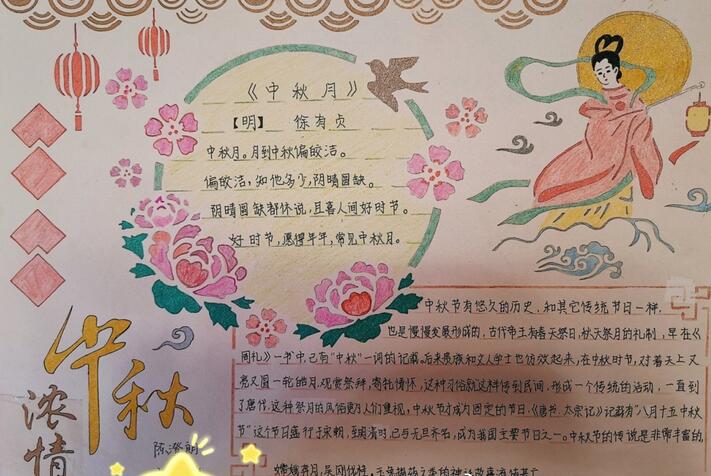 《中秋月》
【明】 徐有贞
中秋月。月到中秋偏皎洁。
偏皎洁，知他多少，阴晴圆缺。
阴晴圆缺都休说，且喜人间好时节。
好时节，愿得年年，常见中秋月。
中秋节有悠久的历史，和其它传统节日一样，
也是慢慢发展形成的，古代帝王有春天祭日，秋天祭月的礼制，早在《
周礼》一书中已有"中秋"一词的记载。后来贵族和文人学士也仿效起来，在中秋时节，对着天上又
亮又圆一轮皓月，观赏祭拜，寄托情怀，这种习俗就这样传到民间，形成一个传统的活动，一直到
了唐代，这种祭月的风俗更为人们重视，中秋节才成为固定的节日，《唐书·太宗记》记载有"八月十五中秋
节"这个节日盛行于宋朝，至明清时，已与元旦齐名，成为我国主要节日之一。中秋节的传说是非常丰富的，
嫦娥奔月，吴刚伐桂，玉兔捣药之类的神话故事流传甚广
中秋
浓情